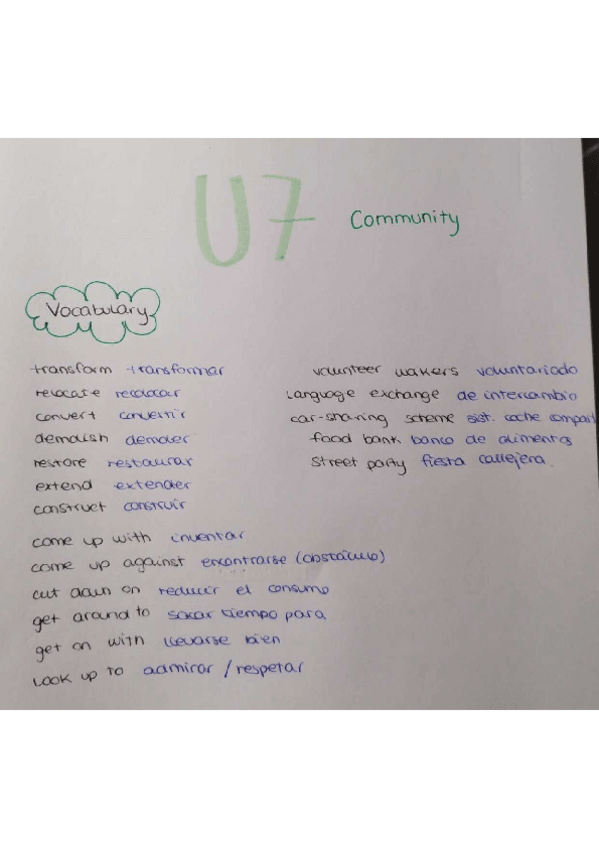 U7 Community
Vocabulary
transform transformar
relocate recolocar
convert convertir
demolish demoler
restore restaurar
extend extender
construct construir
volunteer wakers voluntariado
language exchange de intercambio
car-sharing scheme sist. coche compart
food bank banco de alimentos
street party fiesta callejera.
come up with inventar
come up against encontrarse (obstáculo)
cut down on reducir el consumo
get around to sacar tiempo para
get on with llevarse bien
look up to admirar / respetar